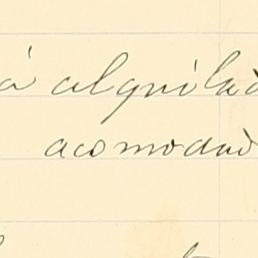 á alquilad
acomodad